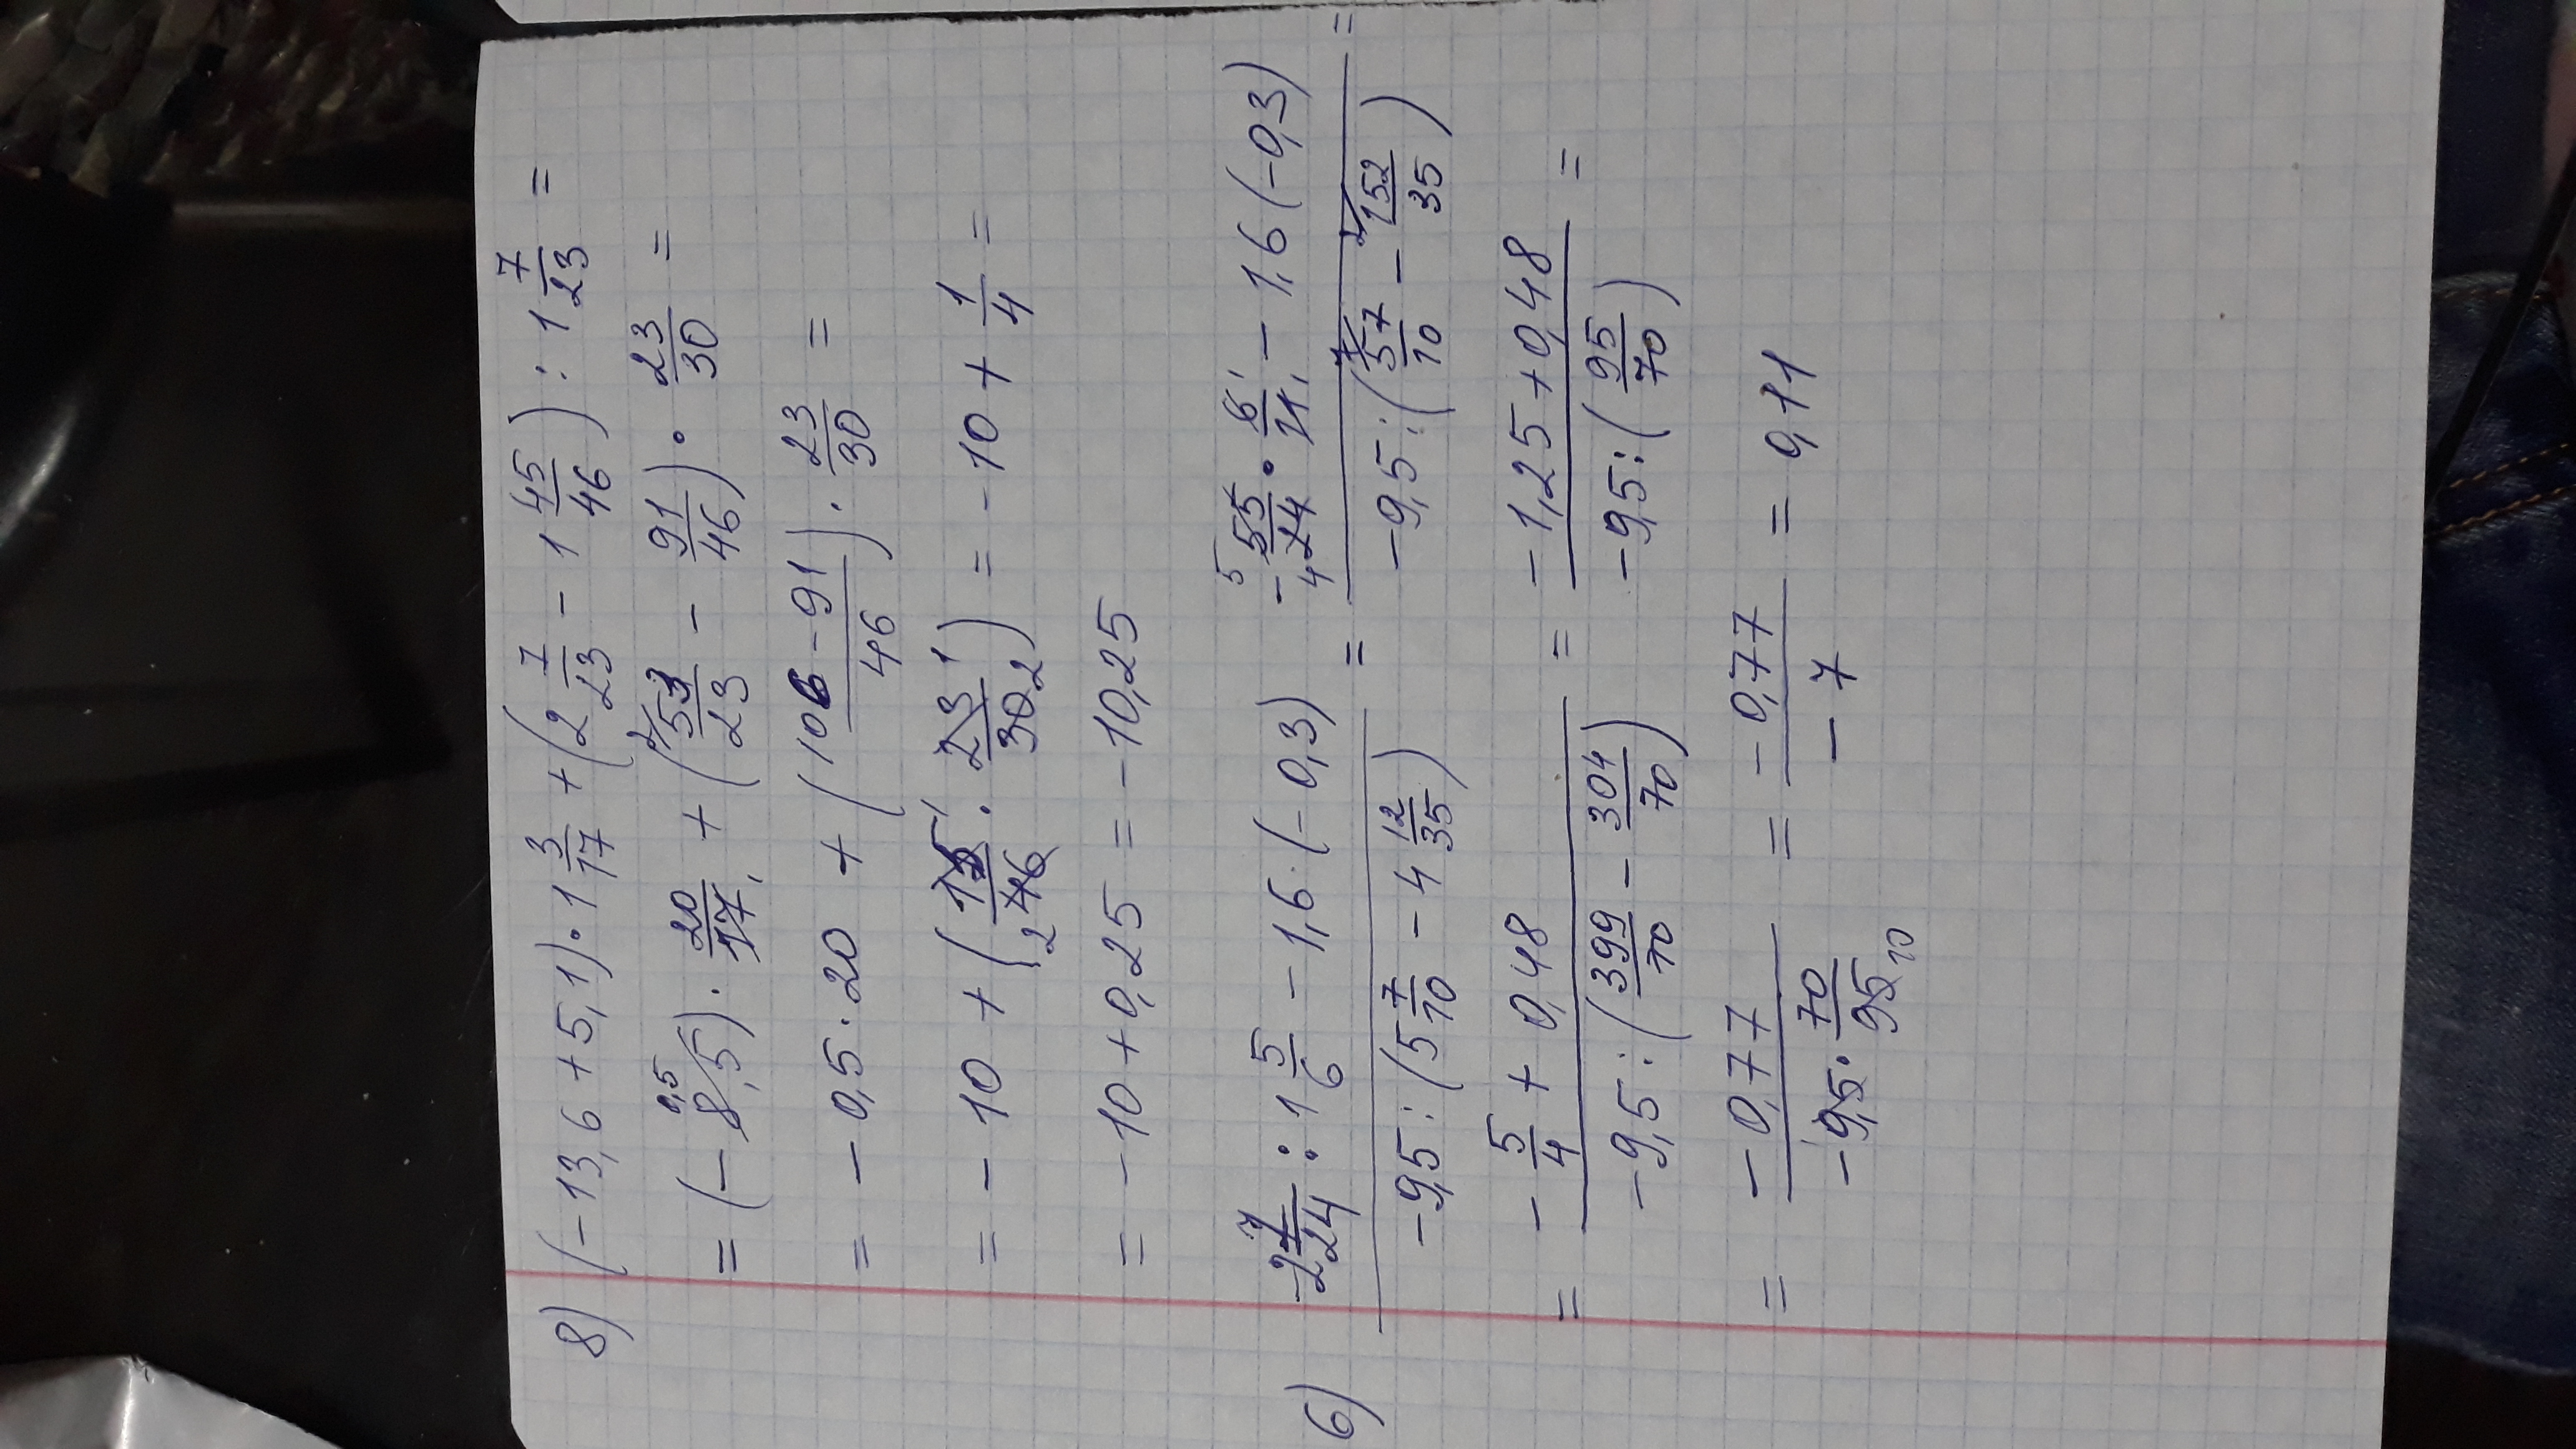 8) (-13,6 + 5,1) · 1 3/17 + (2 7/23 - 1 45/46) : 1 7/23 =
= (-8,5) · 20/17 + (53/23 - 91/46) · 23/30 =
= -0,5 · 20 + (106-91/46) · 23/30 =
= -10 + (15/46 · 23/30) = -10 + 1/4 =
= -10 + 0,25 = -10,25
6) -2 7/24 : 1 5/6 - 1,6 · (-0,3) / -9,5 : (5 7/10 - 4 12/35) = -55/24 · 6/11 - 1,6 (-0,3) / -9,5 : (57/10 - 152/35) =
= -5/4 + 0,48 / -9,5 : (399/70 - 304/70) = -1,25 + 0,48 / -9,5 : (95/70) =
= -0,77 / -9,5 · 70/95 = -0,77 / -7 = 0,11